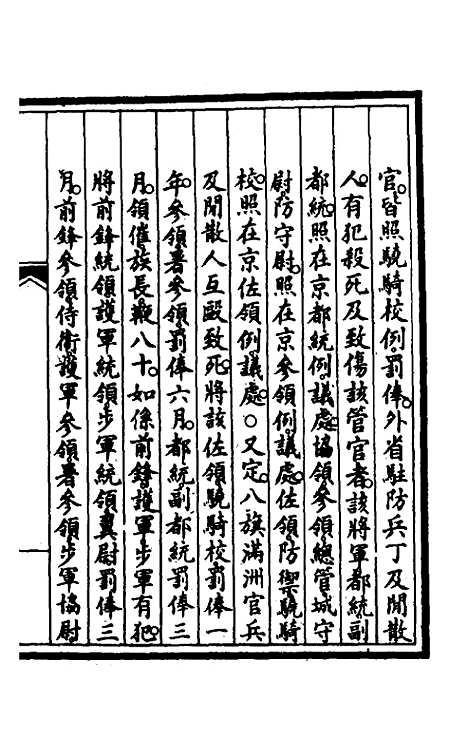 官。皆照驍騎校例罰俸。外省駐防兵丁及閒散
人。有犯殺死及致傷該管官者。該將軍都統副
都統。照在京都統例。議處。協領參領總管城守
尉。防守尉。照在京參領例。議處。佐領防禦驍騎
校。照在京佐領例議處。○又定。八旗滿洲官兵
及閒散人互毆致死。將該佐領驍騎校罰俸一
年。參領署參領罰俸六月。都統副都統罰俸三
月。領催族長鞭八十。如係前鋒護軍步軍有犯。
將前鋒統領護軍統領步軍統領翼尉罰俸三
月。前鋒參領侍衛護軍參領署參領步軍協尉